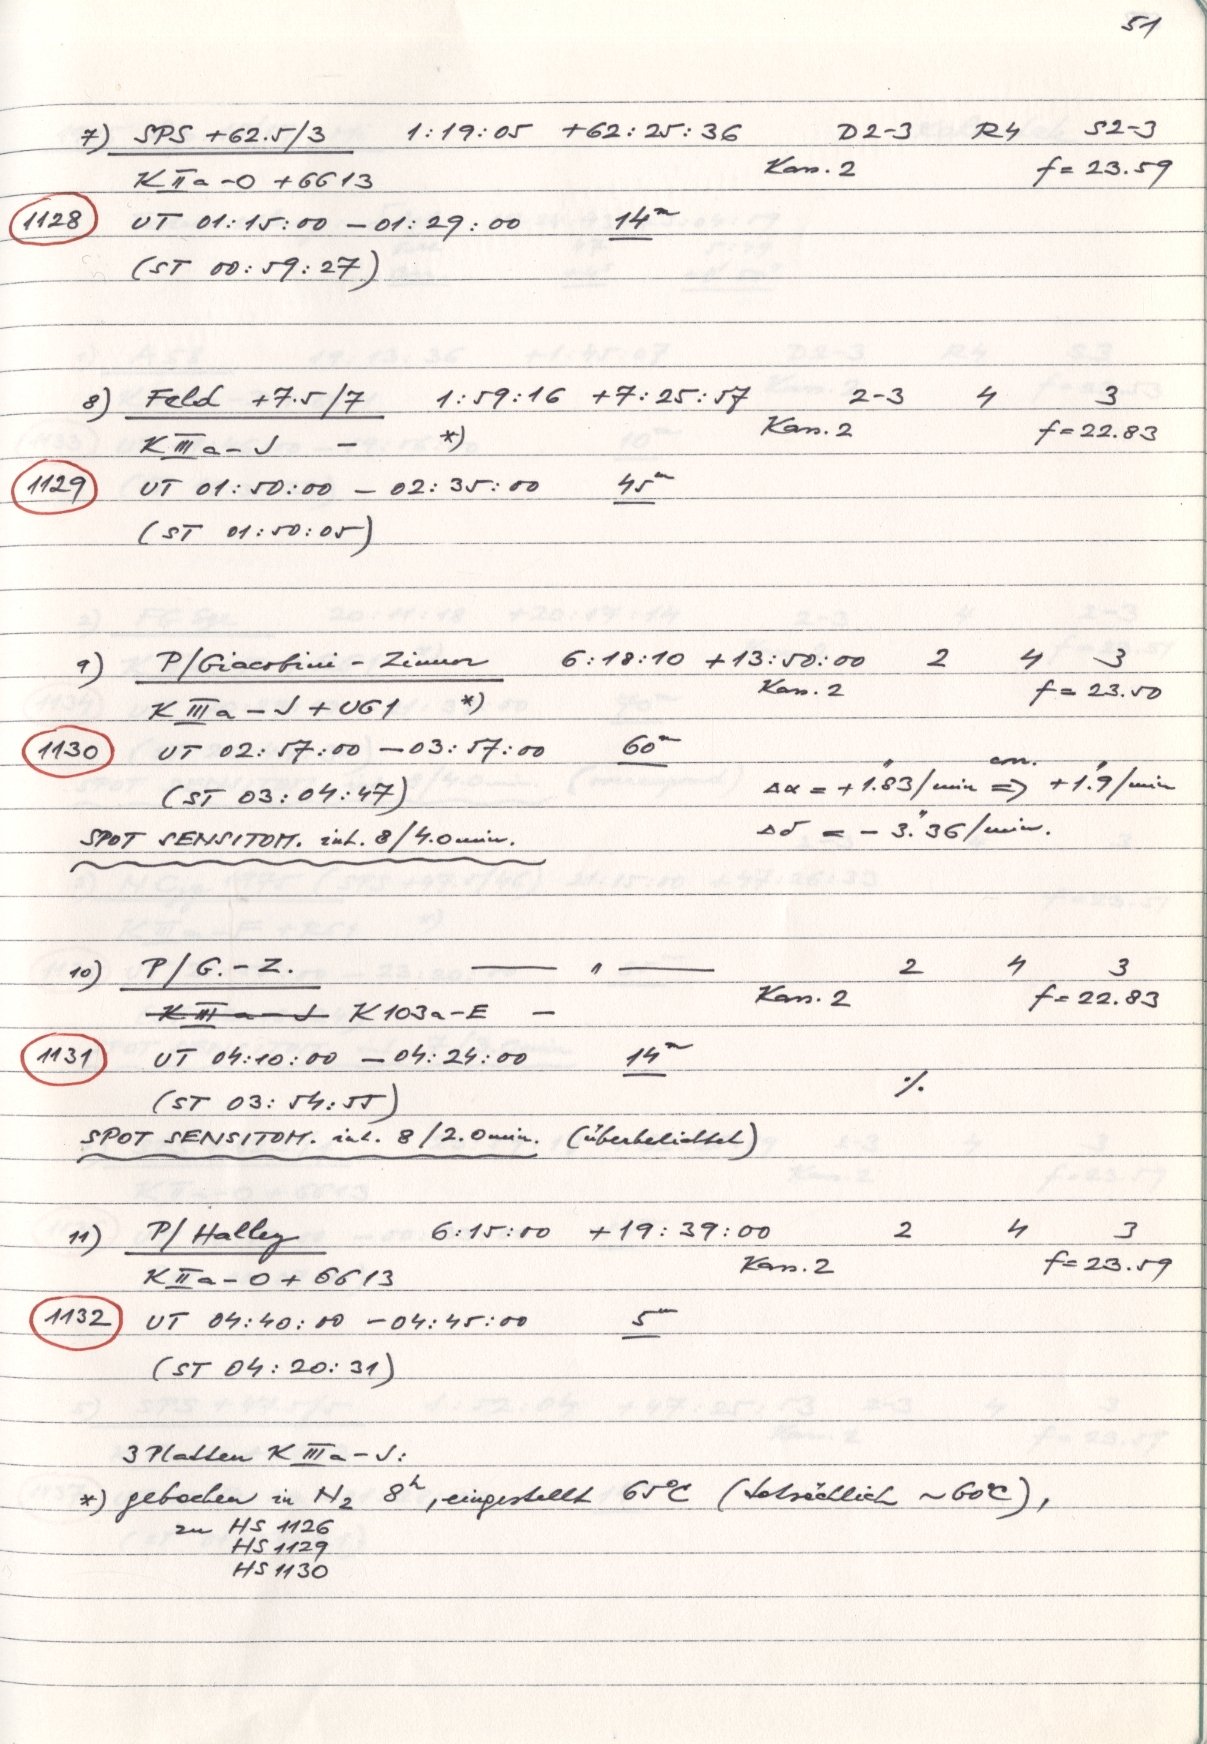 51
7) SPS +62.5/3 1:19:05 +62:25:36 D2-3 R4 S2-3
K IIa-O + GG13 Kass. 2 f = 23.59
1128 UT 01:15:00 - 01:29:00 14m
(ST 00:59:27)
8) Feld +7.5/7 1:59:16 +7:25:57 2-3 4 3
K IIIa-J - *) Kass. 2 f = 22.83
1129 UT 01:50:00 - 02:35:00 45m
(ST 01:50:05)
9) P/Giacobini-Zinner 6:18:10 +13:50:00 2 4 3
K IIIa-J + UG1 *) Kass. 2 f = 23.50
1130 UT 02:57:00 - 03:57:00 60m
(ST 03:04:47) Δα = +1".83/min => corr. +1".9/min
SPOT SENSITOM. int. 8/4.0 min. Δδ = -3".36/min.
10) P/G.-Z. — " — 2 4 3
K IIIa-J K103a-E - Kass. 2 f = 22.83
1131 UT 04:10:00 - 04:24:00 14m
(ST 03:54:55) ./.
SPOT SENSITOM. int. 8/2.0 min. (überbelichtet)
11) P/Halley 6:15:00 +19:39:00 2 4 3
K IIa-O + GG13 Kass. 2 f = 23.59
1132 UT 04:40:00 - 04:45:00 5m
(ST 04:20:31)
3 Platten K IIIa-J:
*) gebacken in N2 8h, eingestellt 65°C (tatsächlich ~60°C),
zu HS 1126
HS 1129
HS 1130